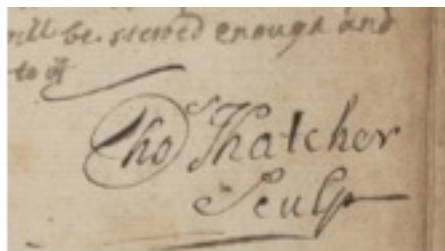 will be stewed enough and
to it
Tho Thatcher
Sculp